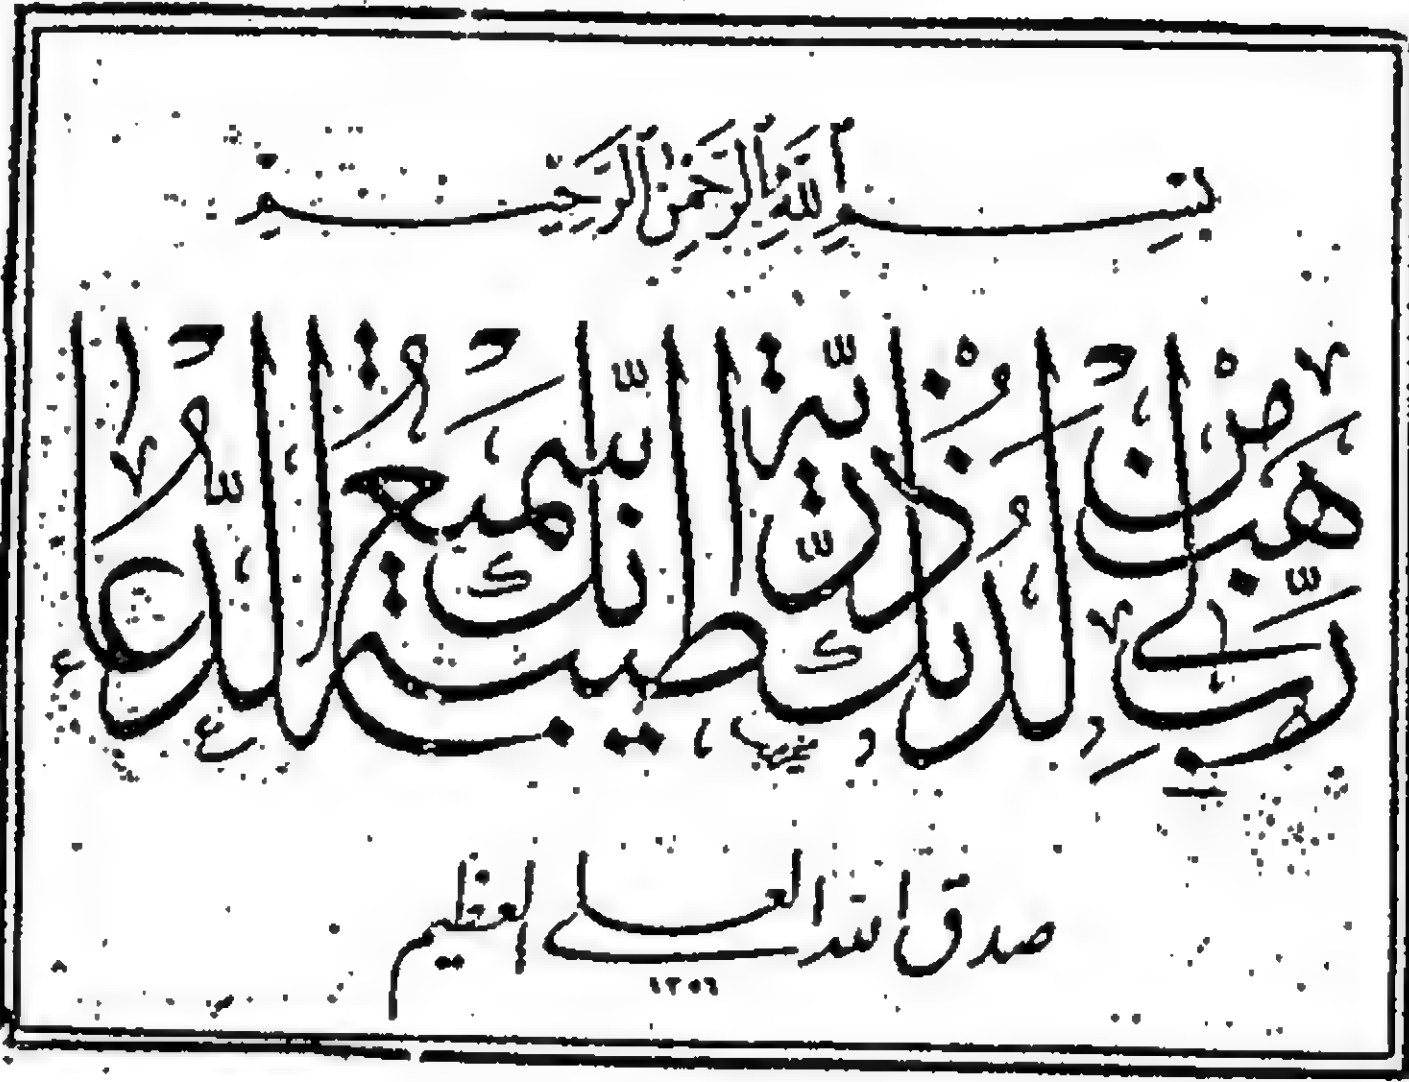 بِسْمِ اللَّهِ الرَّحْمَنِ الرَّحِيمِ
رَبِّ هَبْ لِي مِنْ لَدُنْكَ ذُرِّيَّةً طَيِّبَةً إِنَّكَ سَمِيعُ الدُّعَاءِ
صدق الله العلي العظيم